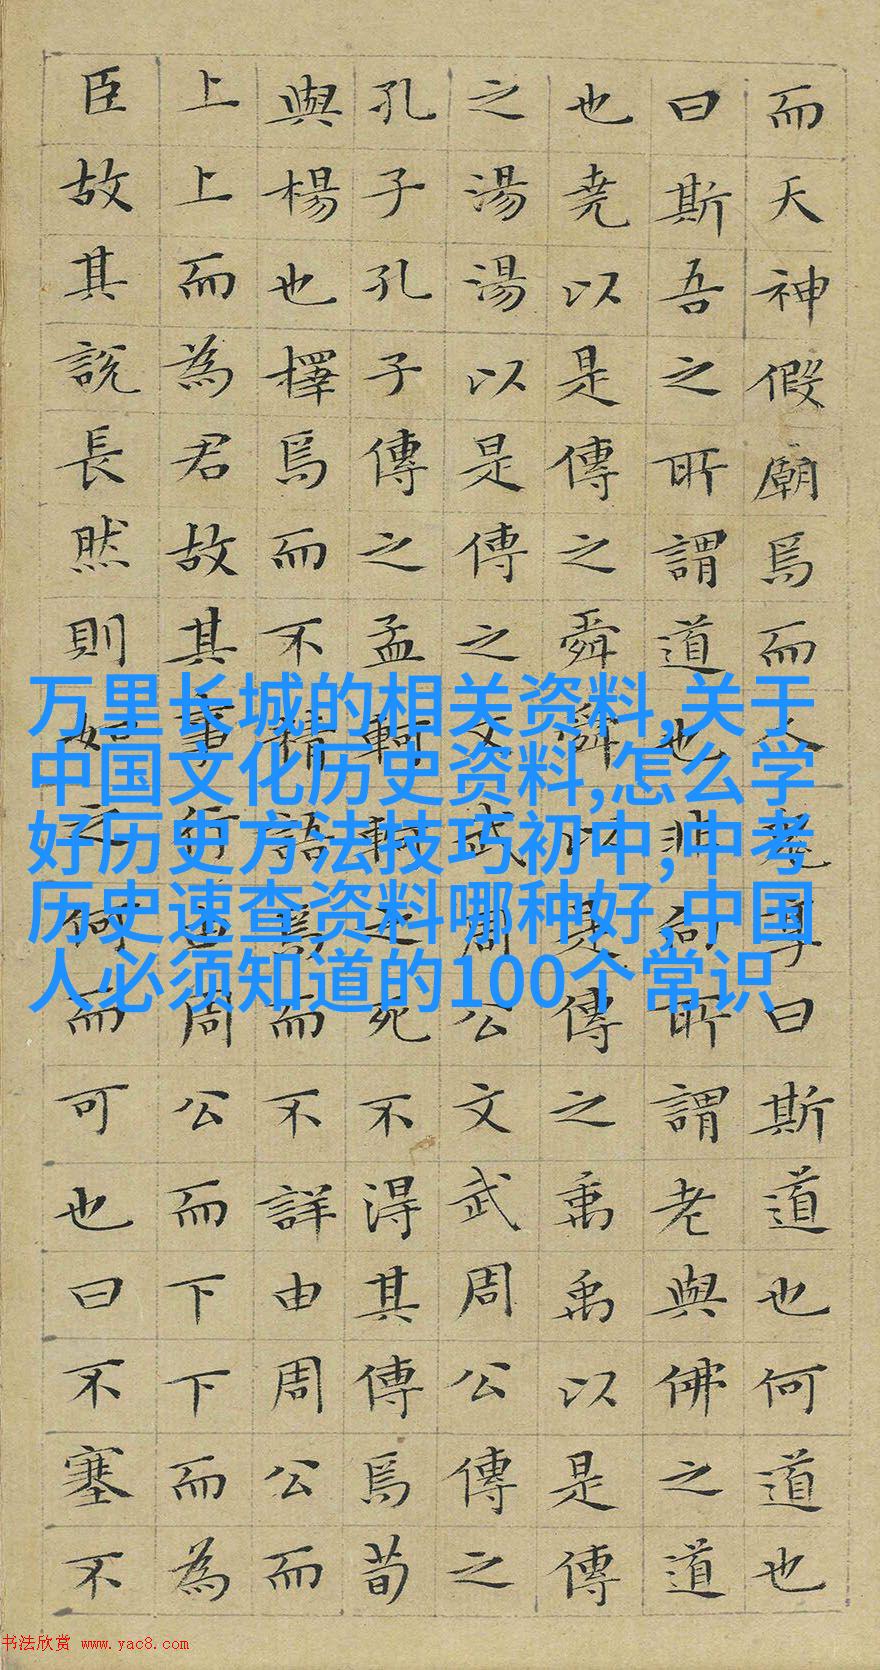 而天神假廟焉而人鬼享曰斯道也何道也
曰斯吾之所謂道也非向所謂老與佛之道
也堯以是傳之舜舜以是傳之禹禹以是傳
之湯湯以是傳之文武周公文武周公傳之
孔子孔子傳之孟軻軻之死不得其傳焉荀
與楊也擇焉而不精語焉而不詳由周公而
上上而為君故其事行由周公而下下而為
臣故其說長然則如之何而可也曰不塞不
万里长城的相关资料,关于
中国文化历史资料,怎么学
好历史方法技巧初中,中考
历史速查资料哪种好,中国
人必须知道的100个常识
书法欣赏 www.yac8.com